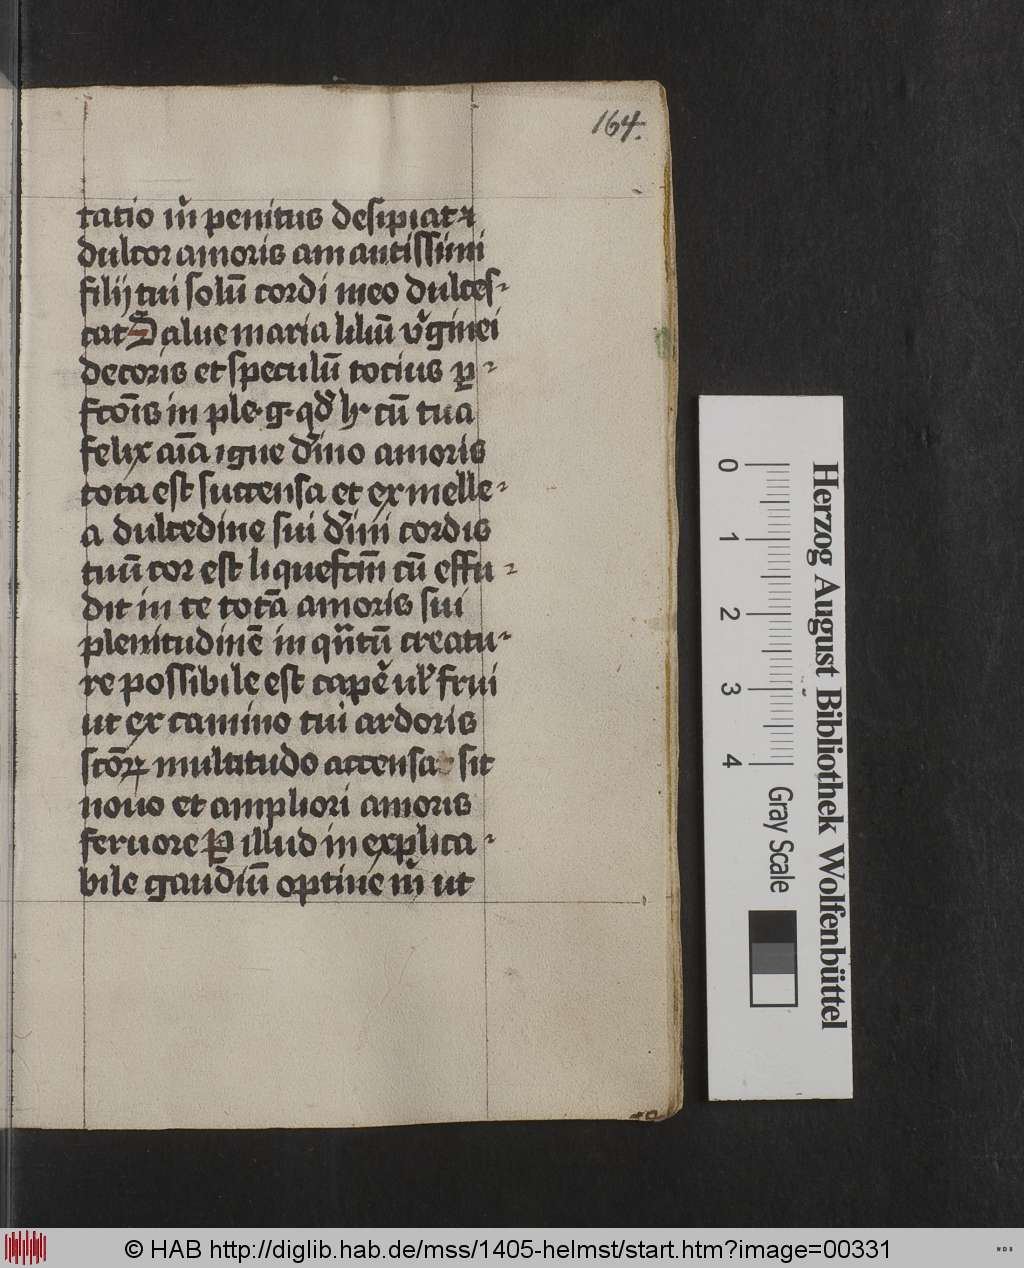 164.
tatio m̄ penitus desipiat ⁊
dulcor amoris amantissimi
filij tui solū cordi meo dulces-
cat Salue maria liliū v̓ginei
decoris et speculū tocius ꝑ-
fcōis in ple· g· qd̓ hʳ cū tua
felix aīa igne d̓ino amoris
tota est succensa et ex melle-
a dulcedine sui d̓ini cordis
tuū cor est liquefctm̄ cū effu-
dit in te totā amoris sui
plenitudinē in qn̄tū creatu-
re possibile est cape̓ ul̓ frui
ut ex camino tui ardoris
scōꝝ multitudo accensa sit
nouo et ampliori amoris
feruore Ꝑ illud inexplica-
bile gaudiū optine m̓ ut
0 1 2 3 4
Gray Scale
Herzog August Bibliothek Wolfenbüttel
© HAB http://diglib.hab.de/mss/1405-helmst/start.htm?image=00331